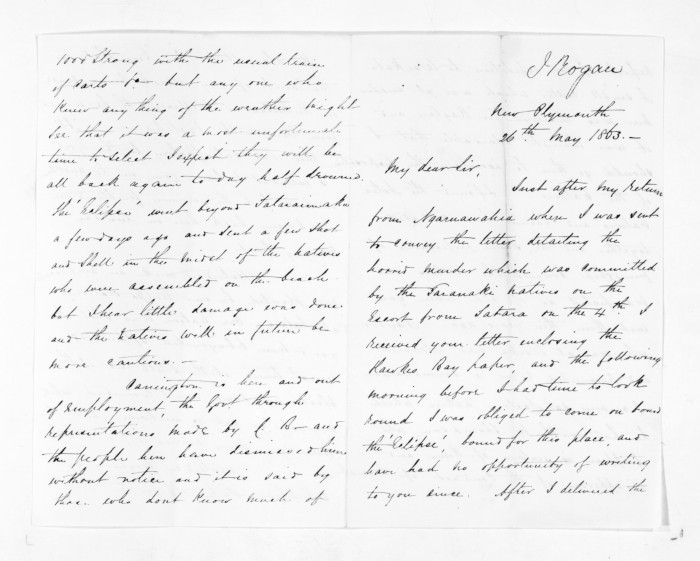 J Rogan
New Plymouth
26th May 1863 –
My dear Sir,
Just after my return
from Ngaruawahia where I was sent
to convey the letter detailing the
horrid murder which was committed
by the Taranaki natives on the
Escort from Tatara on the 4th I
received your letter enclosing the
Hawkes Bay paper, and the following
morning before I had time to look
round I was obliged to come on board
the 'Eclipse', bound for this place, and
have had no opportunity of writing
to you since. After I delivered the
1000 strong with the usual train
of carts &c but any one who
knew anything of the weather might
see that it was a most unfortunate
time to select I expect they will be
all back again to day half drowned.
the 'Eclipse' went beyond Tataraimaka
a few days ago and sent a few shot
and shell in the midst of the natives
who were assembled on the beach
but I hear little damage was done
and the natives will in future be
more cautious. –
Carrington is here and out
of employment, the Govt through
representations made by C B – and
the people here have dismissed him
without notice and it is said by
those who dont know much of